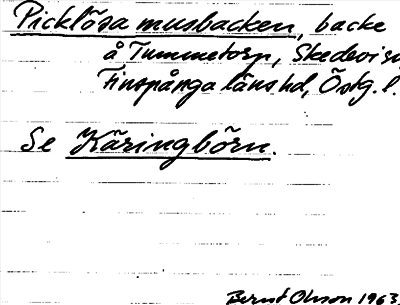 Picklösa musbacken, backe
å Tummetorp, Skedevi sn
Finspånga läns hd, Östg. l.
Se Käringbörn.
Bernt Olsson 1963.